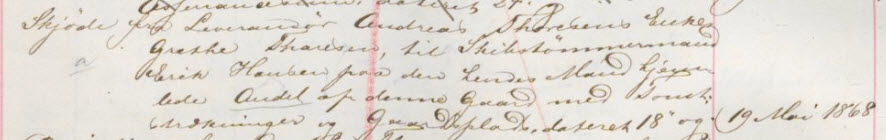 Assurancesum, dateret 24.
Skjøde fra Leverandør Andreas Thoresens Enke
Grethe Thoresen, til Skibstømmermand
a Erik Hansen paa den hendes Mand hjem-
lede Andel af denne Gaard med Tomt:
strækninger og Gaardsplads, dateret 18 og 19 Mai 1868